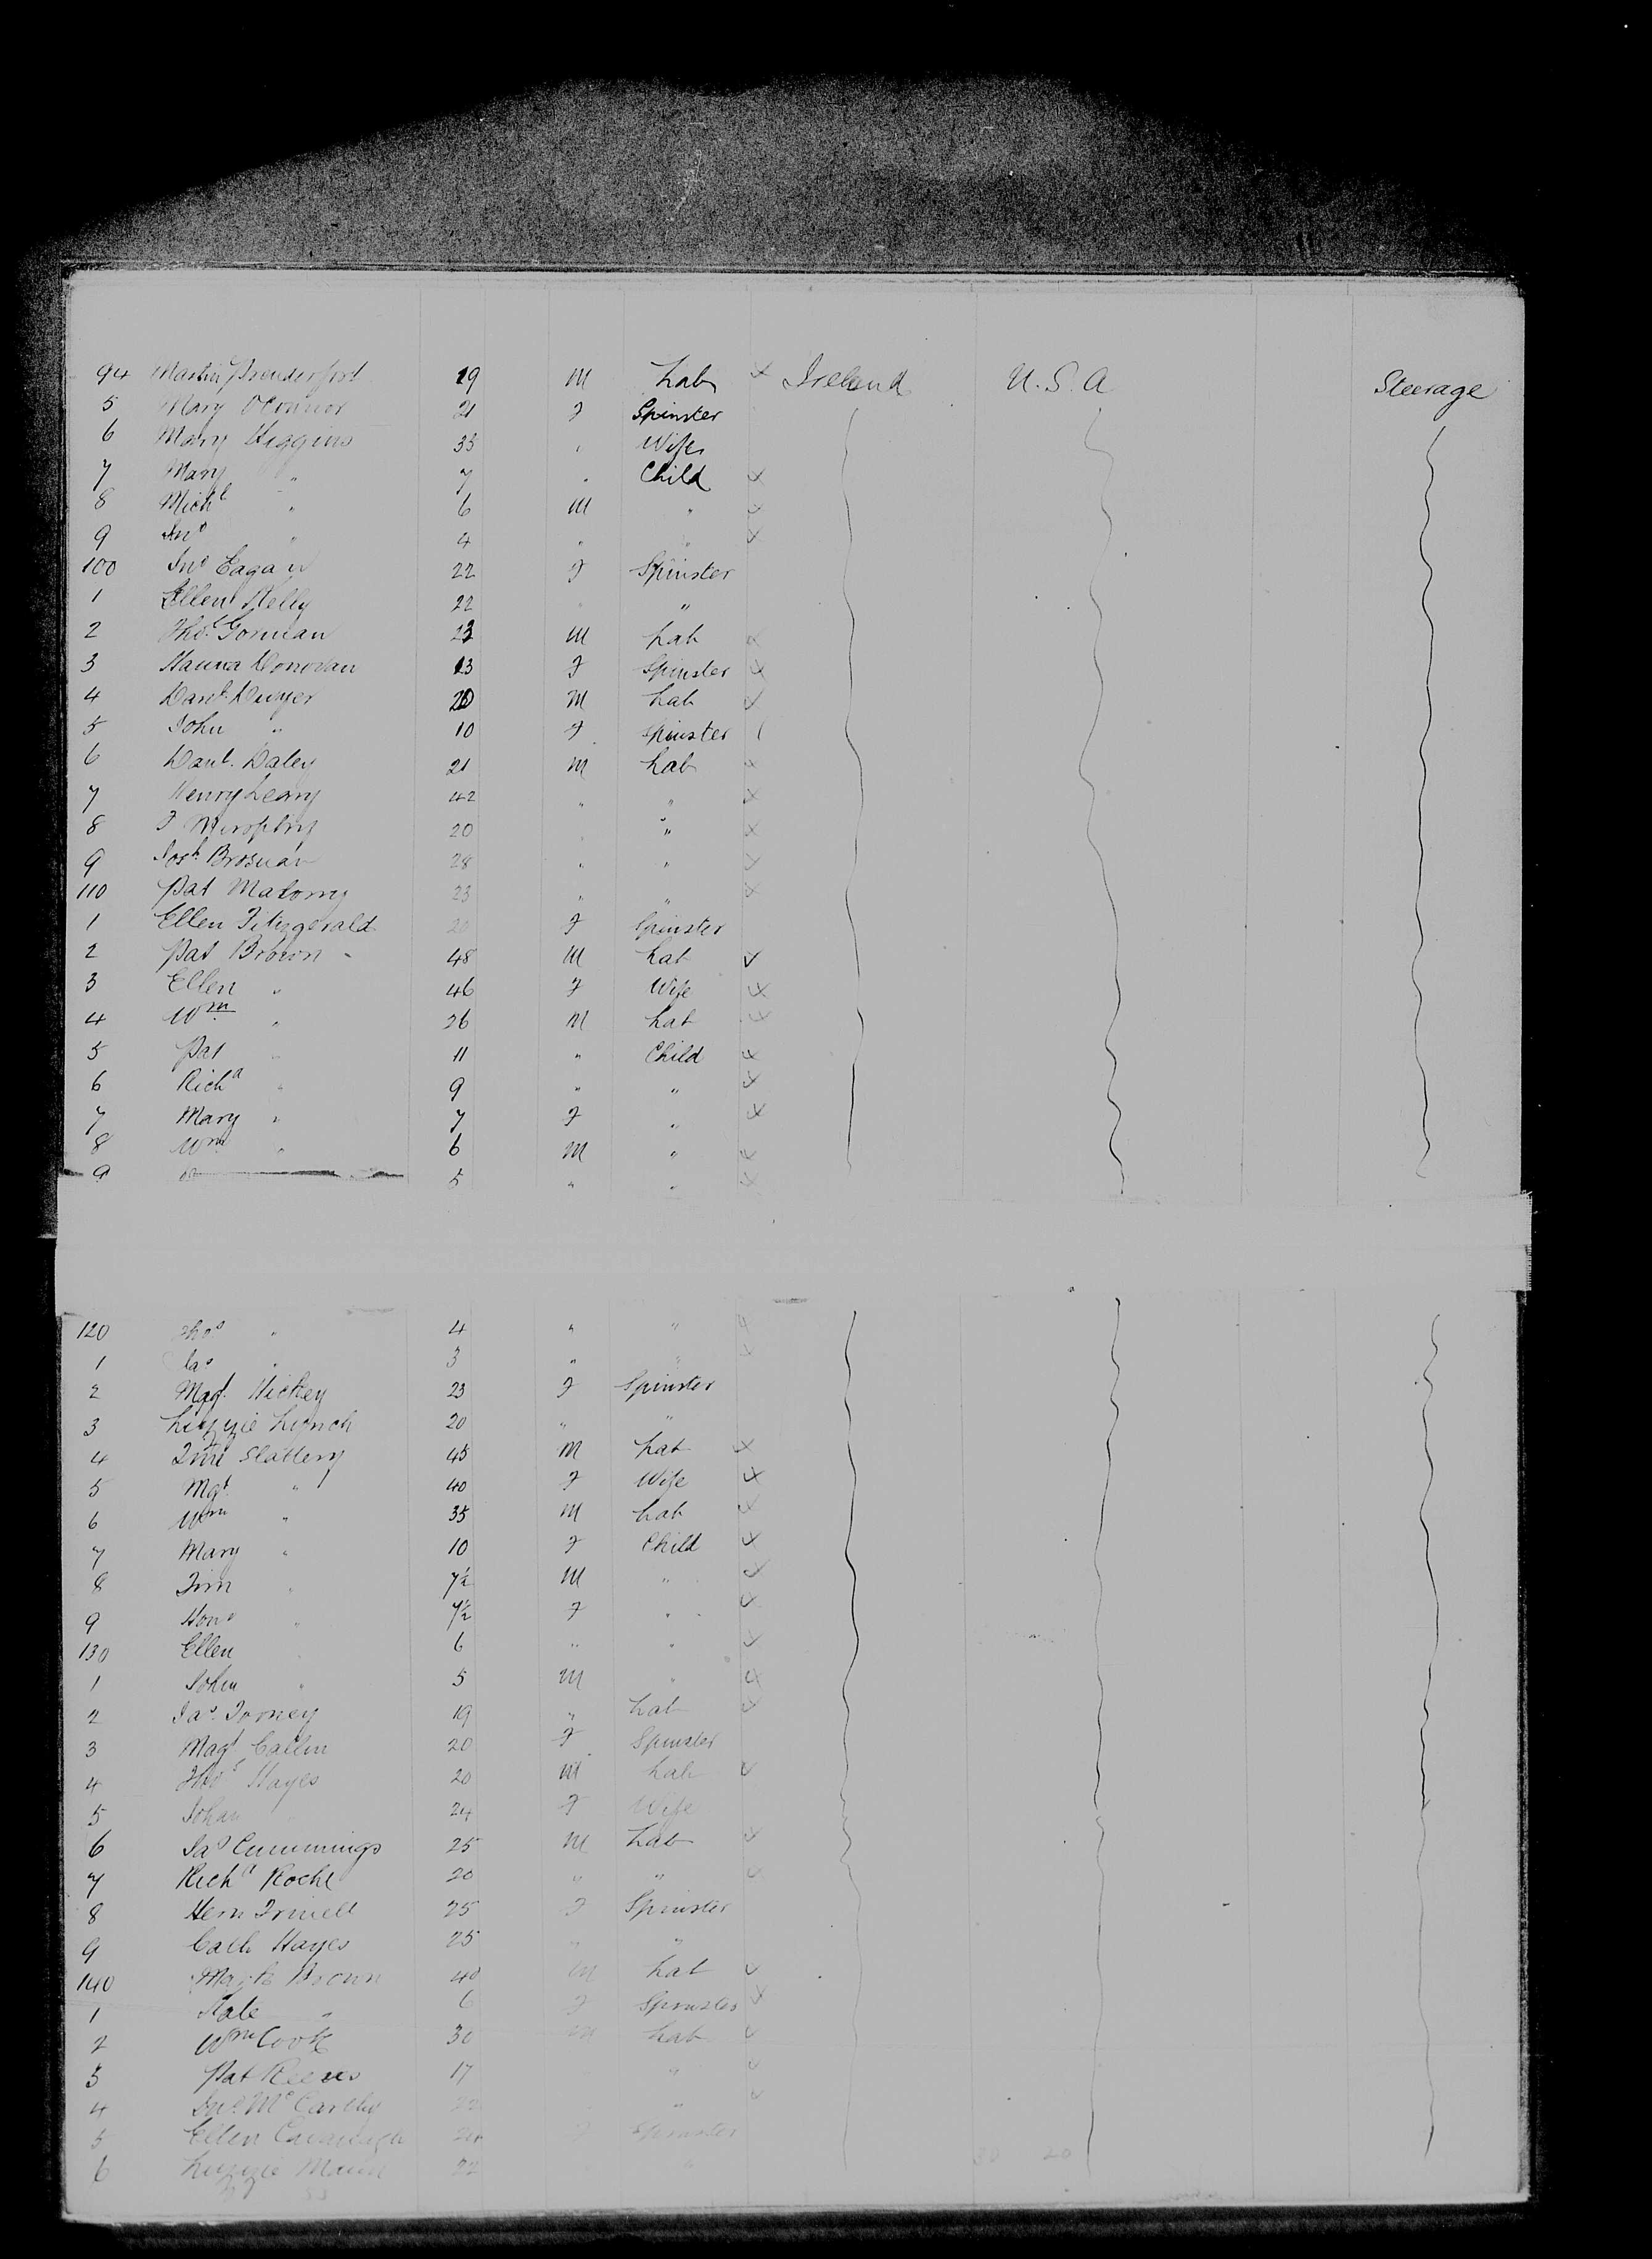 94 Martin Prenderfort 19 M Lab x Ireland U.S.A Steerage
5 Mary OConnor 21 F Spinster
6 Mary Higgins 33 " Wife
7 Mary " 7 " Child x
8 Michl " 6 M " x
9 Jno " 4 " " x
100 Jno Eagan 22 F Spinster
1 Ellen Kelly 22 " "
2 Thos Gorman 23 M Lab x
3 Hanna Donovan 13 F Spinster x
4 Danl. Dwyer 20 M Lab x
5 John " 10 F Spinster
6 Danl. Daley 21 M Lab x
7 Henry Leary 42 " " x
8 J Murphy 20 " " x
9 Josh. Brosnan 28 " " x
110 Pat Mahony 23 " " x
1 Ellen Fitzgerald 20 F Spinster
2 Pat Brown 48 M Lab x
3 Ellen " 46 F Wife x
4 Wm " 26 M Lab x
5 Pat " 11 " Child x
6 Richd " 9 " " x
7 Mary " 7 F " x
8 Wm " 6 M " x
9 5 " " x
120 Thos " 4 " " x
1 Jas " 3 " " x
2 Magt. Hickey 23 F Spinster
3 Lizzie Lynch 20 " "
4 Timl Slattery 45 M Lab x
5 Mgt. " 40 F Wife x
6 Wm " 35 M Lab x
7 Mary " 10 F Child x
8 Tim " 7½ M " x
9 Hono " 7½ F " x
130 Ellen " 6 " " x
1 John " 5 M " x
2 Jas. Toomey 19 " Lab x
3 Magt Callin 20 F Spinster
4 Thos Hayes 20 M Lab x
5 Johan 24 F Wife
6 Jas Cummings 25 M Lab x
7 Richd Roche 20 " " x
8 25 F Spinster
9 Cath Hayes 25 " "
140 Brown 40 M Lab x
1 Kate " 6 F Spinster x
2 Wm Cook 30 M Lab x
3 Pat Reeves 17 " x
4 Jno. McCarthy 22 " x
5 Ellen Cavanagh F Spinster
6 Lizzie Mann 22 "
30 20